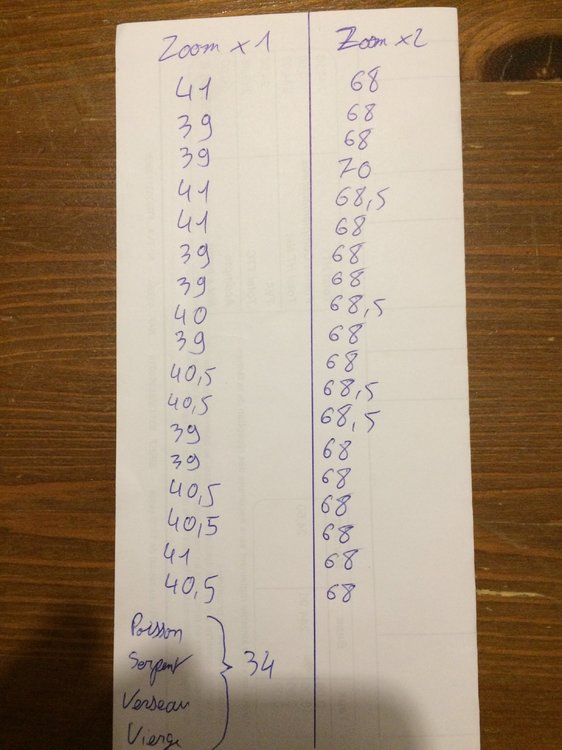 Zoom x 1
41
39
39
41
41
39
39
40
39
40,5
40,5
39
39
40,5
40,5
41
40,5
Poisson
Serpent
Verseau
Vierge
34
Zoom x 2
68
68
68
70
68,5
68
68
68
68,5
68
68
68,5
68,5
68
68
68
68
68
68